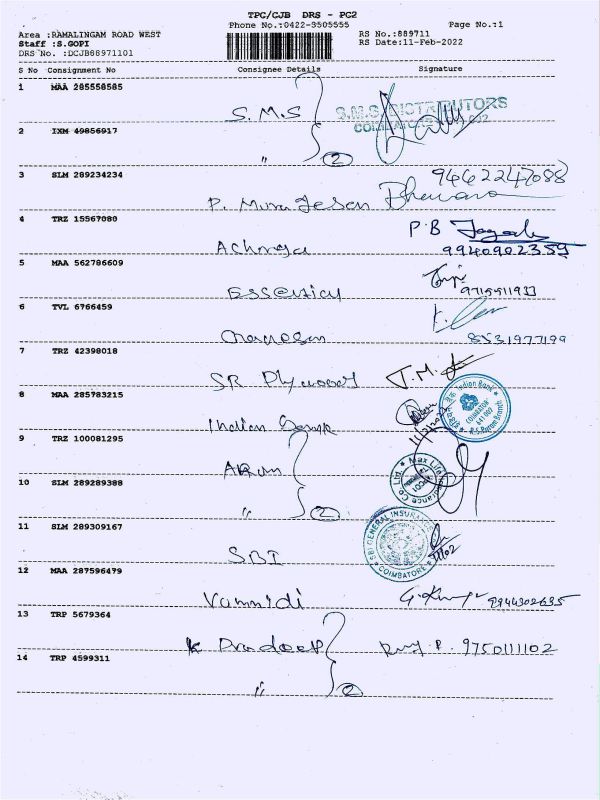 TPC/CJB DRS - PC2
Phone No.:0422-3505555 Page No.:1
Area :RAMALINGAM ROAD WEST RS No.:889711
Staff :S.GOPI RS Date:11-Feb-2022
DRS No. :DCJB88971101
S No Consignment No Consignee Details Signature
1 MAA 285558585
S.M.S S.M.S. DISTRIBUTORS
2 IXM 49856917
" 2
3 SLM 289234234 9442247088
P. Murugesan
4 TRZ 15567080 P.B
9940902359
5 MAA 562786609
Essential 9715911933
6 TVL 6766459
8531977199
7 TRZ 42398018
SR Plywood J.M.
8 MAA 285783215 Indian Bank
COIMBATORE 641 002
R.S. Puram Branch
Indian Bank 11/2/22
9 TRZ 100081295
Arun Max Life Insurance Co Ltd
10 SLM 289289388
" 2
11 SLM 289309167 SBI GENERAL INSURANCE
COIMBATORE
SBI
12 MAA 287596479
Vammidi 9944302635
13 TRP 5679364
K Pradeep P. 9750111102
14 TRP 4599311
" 2